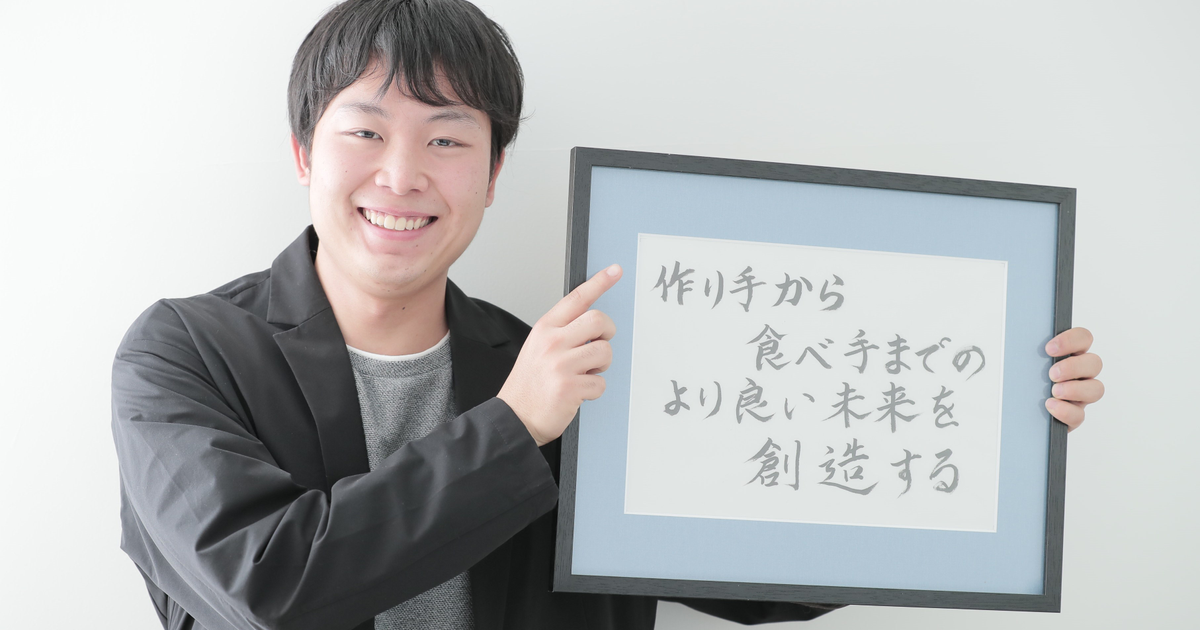 作り手から
食べ手までの
より良い未来を
創造する